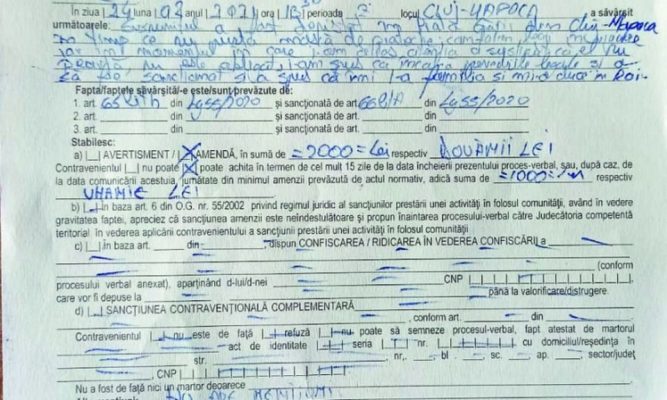 În ziua 24 luna 02 anul 2021 ora 16 perioada locul CLUJ-NAPOCA a săvârșit
următoarele: Susnumitul a fost depistat în Piața Gării din Cluj-Napoca
în timp ce nu purta mască de protecție
iar în momentul în care i-am cerut
i-am spus că încalcă prevederile legale și
să fie sancționat și a spus că îmi familia și mi-o duce în Roi-
Fapta/faptele săvârșită/-e este/sunt prevăzute de:
1. art. 65 lit h din L55/2020 și sancționată de art. 66 lit A din L55/2020
2. art. din și sancționată de art. din
3. art. din și sancționată de art. din
Stabilesc:
a) |_| AVERTISMENT / |X| AMENDĂ, în sumă de =2000= Lei respectiv DOUĂMII LEI
Contravenientul |_| nu poate |X| poate achita în termen de cel mult 15 zile de la data încheierii prezentului proces-verbal, sau, după caz, de
la data comunicării acestuia, jumătate din minimul amenzii prevăzută de actul normativ, adică suma de =1000= respectiv
UNAMIE LEI
b) |_| în baza art. 6 din O.G. nr. 55/2002 privind regimul juridic al sancțiunilor prestării unei activități în folosul comunității, având în vedere
gravitatea faptei, apreciez că sancțiunea amenzii este neîndestulătoare și propun înaintarea procesului-verbal către Judecătoria competentă
teritorial în vederea aplicării contravenientului a sancțiunii prestării unei activități în folosul comunității
c) |_| în baza art. din dispun CONFISCAREA / RIDICAREA ÎN VEDEREA CONFISCĂRII a
(conform
procesului verbal anexat), aparținând d-lui/d-nei CNP
care vor fi depuse la până la valorificare/distrugere.
d) |_| SANCȚIUNEA CONTRAVENȚIONALĂ COMPLEMENTARĂ , conform art. din
Contravenientul |_| nu este de față |_| refuză |_| nu poate să semneze procesul-verbal, fapt atestat de martorul
act de identitate seria nr. cu domiciliul/reședința în
str. nr., bl. sc. ap. sector/județ
CNP
Nu a fost de față nici un martor deoarece
NU ARE MENȚIUNI